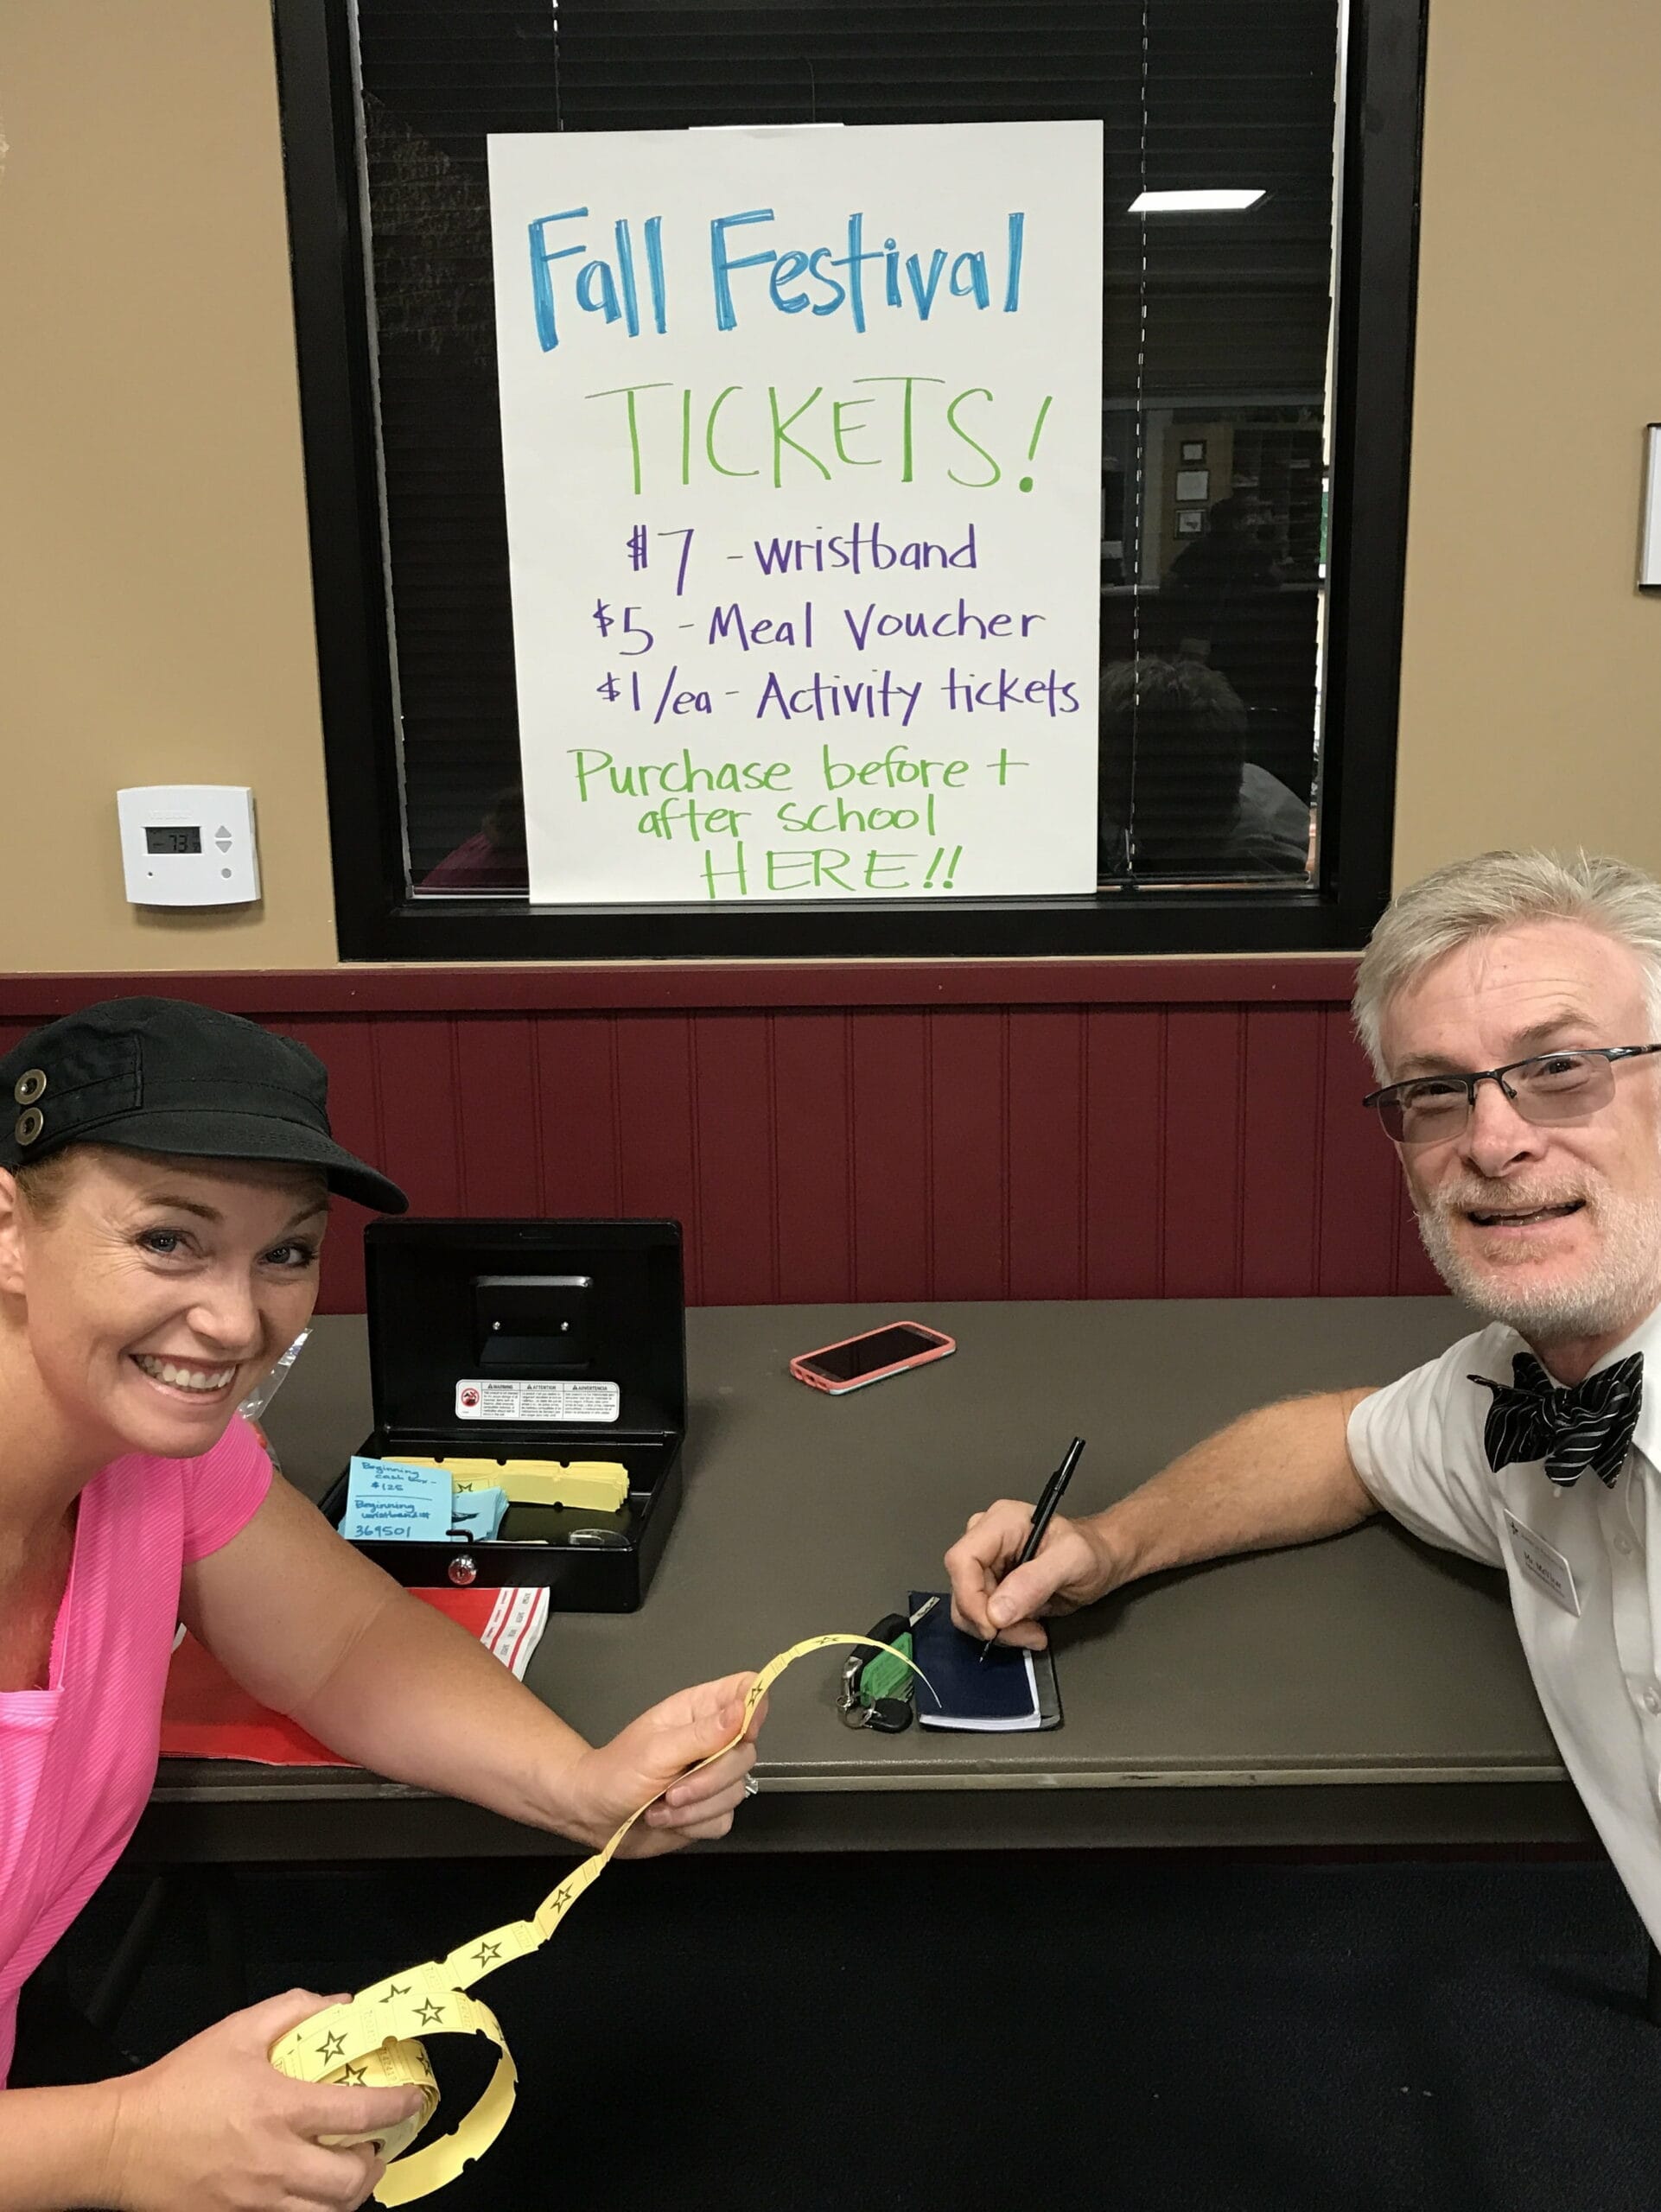 Fall Festival
TICKETS!
$7 - wristband
$5 - Meal Voucher
$1/ea - Activity tickets
Purchase before +
after school
HERE!!
73
WARNING
ATTENTION
ADVERTENCIA
Beginning
cash box -
$125
Beginning
wristband#
369501